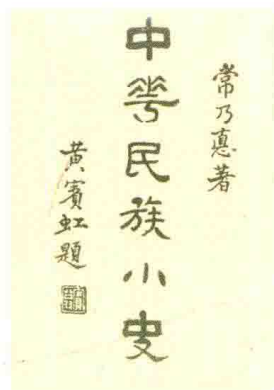 常乃悳著
中華民族小史
黃賓虹題